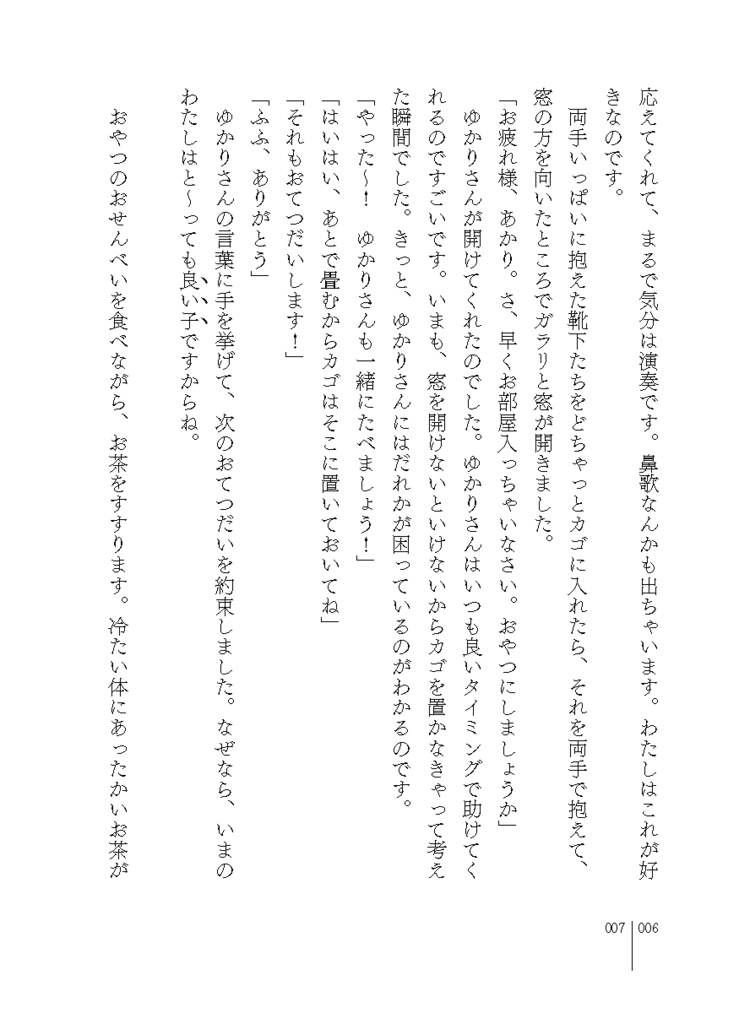 応えてくれて、まるで気分は演奏です。鼻歌なんかも出ちゃいます。わたしはこれが好
きなのです。
　両手いっぱいに抱えた靴下たちをどちゃっとカゴに入れたら、それを両手で抱えて、
窓の方を向いたところでガラリと窓が開きました。
「お疲れ様、あかり。さ、早くお部屋入っちゃいなさい。おやつにしましょうか」
　ゆかりさんが開けてくれたのでした。ゆかりさんはいつも良いタイミングで助けてく
れるのですごいです。いまも、窓を開けないといけないからカゴを置かなきゃって考え
た瞬間でした。きっと、ゆかりさんにはだれかが困っているのがわかるのです。
「やった～！　ゆかりさんも一緒にたべましょう！」
「はいはい、あとで畳むからカゴはそこに置いておいてね」
「それもおてつだいします！」
「ふふ、ありがとう」
　ゆかりさんの言葉に手を挙げて、次のおてつだいを約束しました。なぜなら、いまの
わたしはと～っても良い子ですからね。
　おやつのおせんべいを食べながら、お茶をすすります。冷たい体にあったかいお茶が
006
007